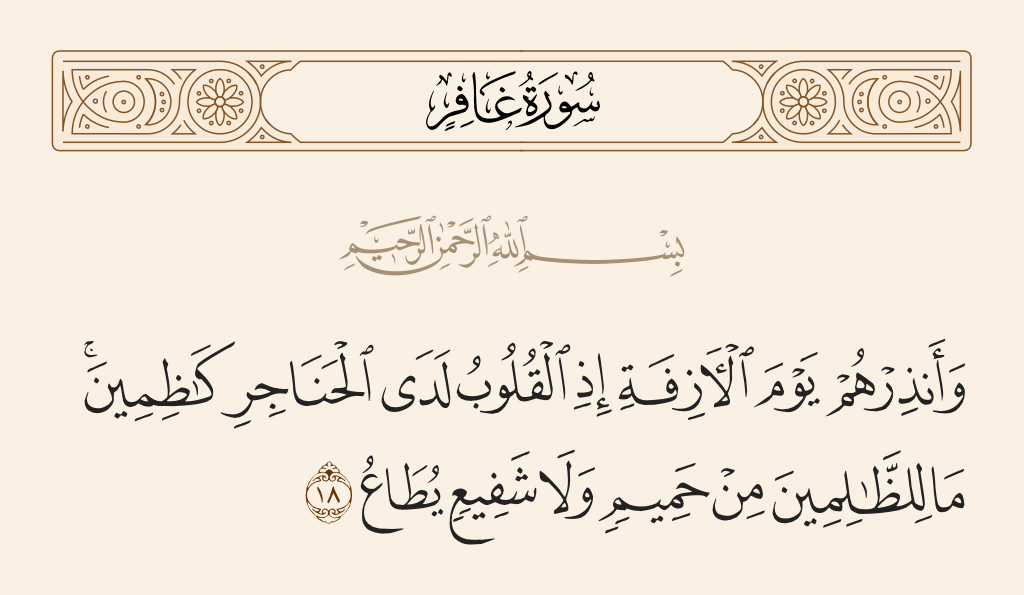 سُورَةُ غَافِرٍ
بِسْمِ ٱللَّهِ ٱلرَّحْمَٰنِ ٱلرَّحِيمِ
وَأَنذِرْهُمْ يَوْمَ ٱلْـَٔازِفَةِ إِذِ ٱلْقُلُوبُ لَدَى ٱلْحَنَاجِرِ كَـٰظِمِينَ ۚ
مَا لِلظَّـٰلِمِينَ مِنْ حَمِيمٍ وَلَا شَفِيعٍ يُطَاعُ ١٨